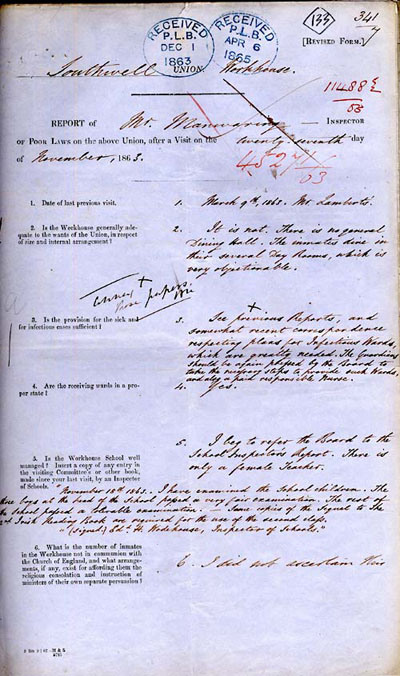 RECEIVED
P.L.B.
DEC 1
1863
RECEIVED
P.L.B.
APR 6
1865
133
341
[REVISED FORM.]
Southwell UNION. Workhouse.
11488
63
REPORT of Mr. Manwaring — INSPECTOR
OF POOR LAWS on the above Union, after a Visit on the twenty-seventh day
of November, 1863.
45271
63
1. Date of last previous visit.
1. March 9th, 1863. Mr. Lambert's.
2. Is the Workhouse generally ade-
quate to the wants of the Union, in respect
of size and internal arrangement?
2. It is not. There is no general
Dining Hall. The inmates dine in
their several Day Rooms, which is
very objectionable.
+
annex
these papers
3. Is the provision for the sick and
for infectious cases sufficient?
+
3. See previous Reports, and
somewhat recent correspondence
respecting plans for Infectious Wards,
which are greatly needed. The Guardians
should be again pressed by the Board to
take the necessary steps to provide such Wards,
and also a paid responsible Nurse.
4. Are the receiving wards in a pro-
per state?
4. Yes.
5. Is the Workhouse School well
managed? Insert a copy of any entry in
the visiting Committee's or other book,
made since your last visit, by an Inspector
of Schools.
5. I beg to refer the Board to the
School Inspectors Report. There is
only a female Teacher.
"November 10th 1863. I have examined the School children. The
three boys at the head of the School passed a very fair examination. The rest of
the School passed a tolerable examination. Some copies of the Sequel to the
2nd Irish Reading Book are required for the use of the second class.
"(Signed) Ed. H. Wodehouse, Inspector of Schools."
6. What is the number of inmates
in the Workhouse not in communion with
the Church of England, and what arrange-
ments, if any, exist for affording them the
religious consolation and instruction of
ministers of their own separate persuasion?
6. I did not ascertain this